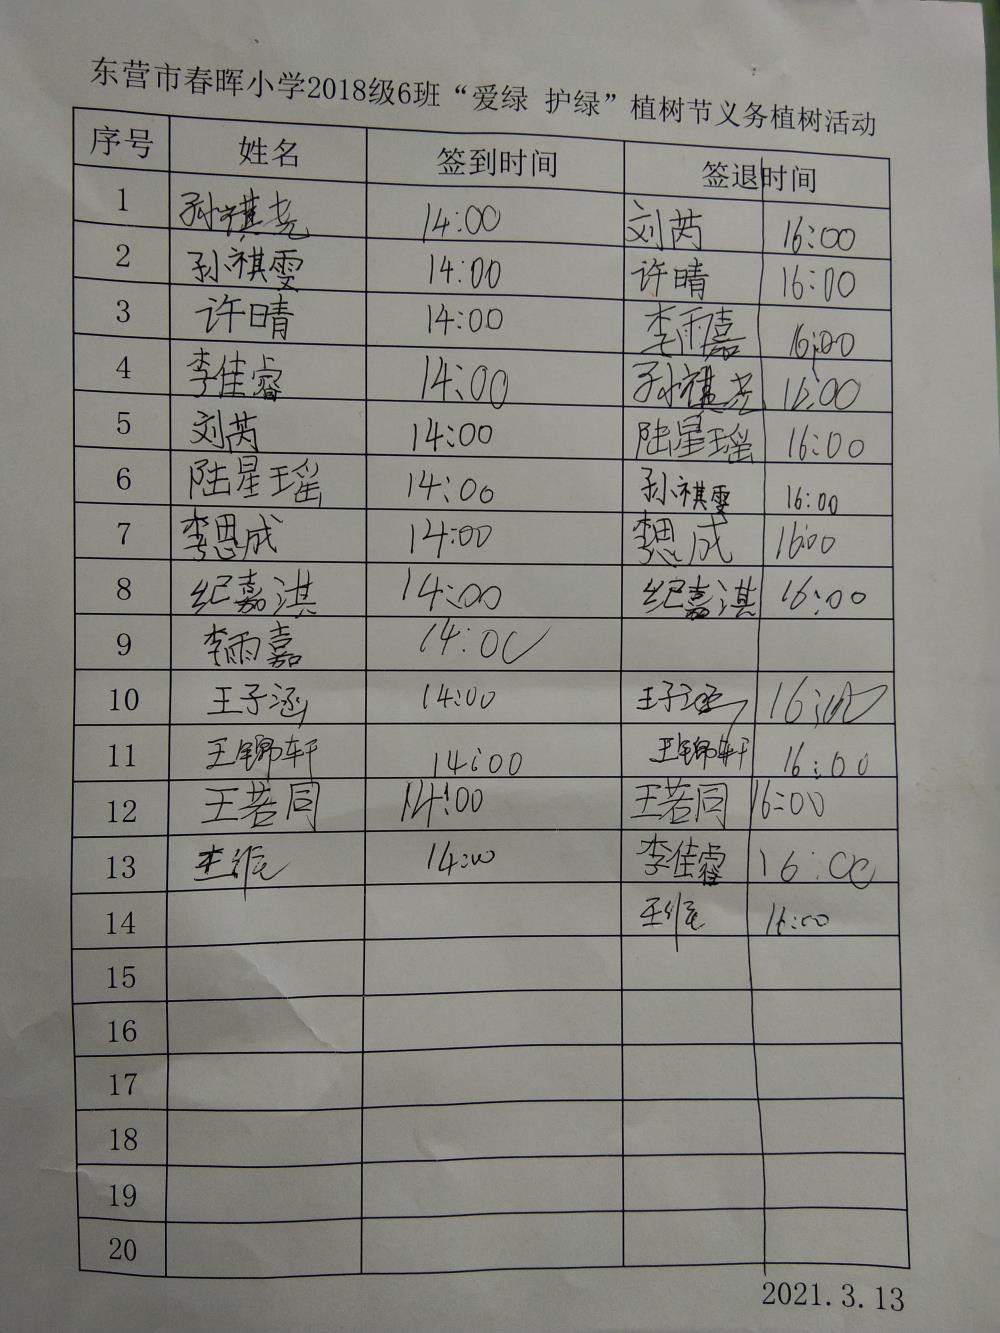 东营市春晖小学2018级6班“爱绿 护绿”植树节义务植树活动
序号 姓名 签到时间 签退时间
1 孙祺尧 14:00 刘芮 16:00
2 孙祺雯 14:00 许晴 16:00
3 许晴 14:00 李雨嘉 16:00
4 李佳睿 14:00 孙祺尧 16:00
5 刘芮 14:00 陆星瑶 16:00
6 陆星瑶 14:00 孙祺雯 16:00
7 李思成 14:00 李思成 16:00
8 纪嘉淇 14:00 纪嘉淇 16:00
9 李雨嘉 14:00
10 王子涵 14:00 王子涵 16:00
11 王锦轩 14:00 王锦轩 16:00
12 王若同 14:00 王若同 16:00
13 14:00 李佳睿 16:00
14 16:00
15
16
17
18
19
20
2021.3.13